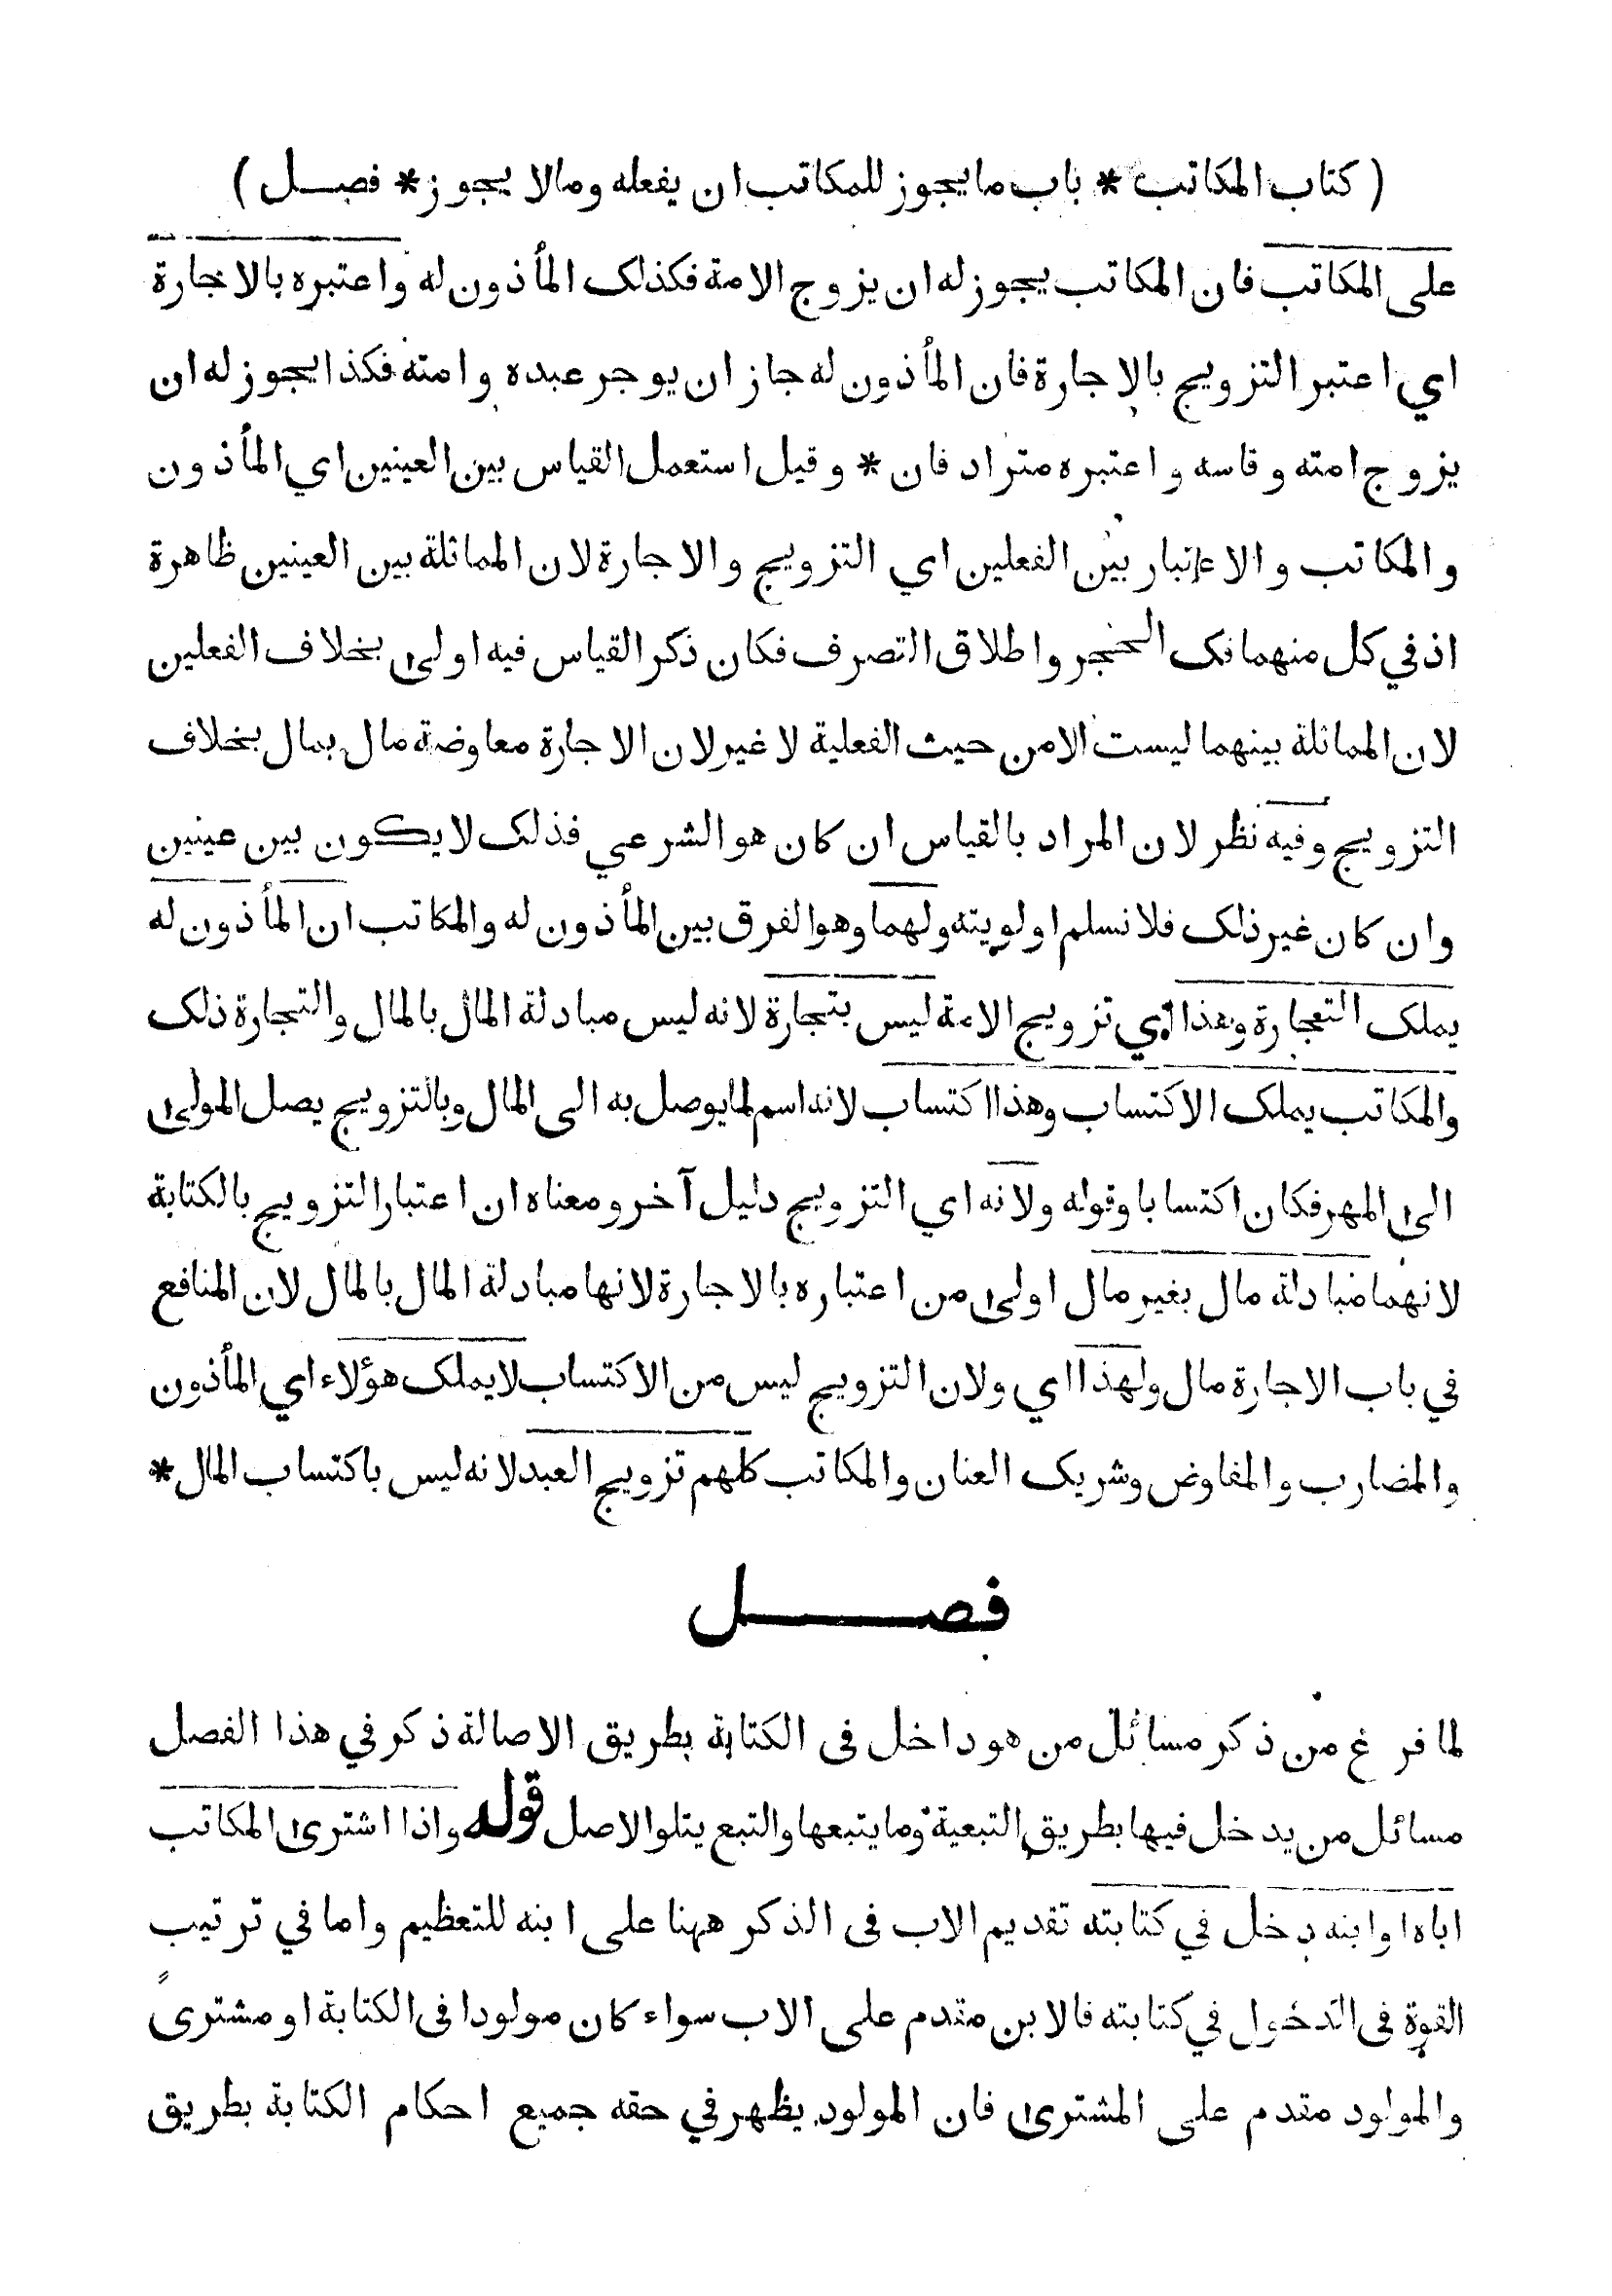 ( كتاب المكاتب * باب ما يجوز للمكاتب ان يفعله وما لا يجوز * فصل )
على المكاتب فان المكاتب يجوز له ان يزوج الامة فكذلك المأذون له واعتبره بالاجارة
اي اعتبر التزويج بالاجارة فان المأذون له جاز ان يوجر عبده وامته فكذا يجوز له ان
يزوج امته وقاسه واعتبره مترادفان * وقيل استعمل القياس بين العينين اي المأذون
والمكاتب والاعتبار بين الفعلين اي التزويج والاجارة لان المماثلة بين العينين ظاهرة
اذ في كل منهما فك الحجر واطلاق التصرف فكان ذكر القياس فيه اولى بخلاف الفعلين
لان المماثلة بينهما ليست الا من حيث الفعلية لا غير لان الاجارة معاوضة مال بمال بخلاف
التزويج وفيه نظر لان المراد بالقياس ان كان هو الشرعي فذلك لا يكون بين عينين
وان كان غير ذلك فلا نسلم اولويته ولهما وهو الفرق بين المأذون له والمكاتب ان المأذون له
يملك التجارة وهذا اي تزويج الامة ليس بتجارة لانه ليس مبادلة المال بالمال والتجارة ذلك
والمكاتب يملك الاكتساب وهذا اكتساب لانه اسم لما يوصل به الى المال وبالتزويج يصل المولى
الى المهر فكان اكتسابا وقوله ولانه اي التزويج دليل آخر ومعناه ان اعتبار التزويج بالكتابة
لانهما مبادلة مال بغير مال اولى من اعتباره بالاجارة لانها مبادلة المال بالمال لان المنافع
في باب الاجارة مال ولهذا اي ولان التزويج ليس من الاكتساب لا يملك هؤلاء اي المأذون
والمضارب والمفاوض وشريك العنان والمكاتب كلهم تزويج العبد لانه ليس باكتساب المال *
فصل
لما فرغ من ذكر مسائل من هو داخل فى الكتابة بطريق الاصالة ذكر في هذا الفصل
مسائل من يدخل فيها بطريق التبعية وما يتبعها والتبع يتلو الاصل قوله واذا اشترى المكاتب
اباه او ابنه دخل في كتابته تقديم الاب فى الذكر ههنا على ابنه للتعظيم واما في ترتيب
القوة فى الدخول في كتابته فالابن مقدم على الاب سواء كان مولودا فى الكتابة او مشترىً
والمولود مقدم على المشترى فان المولود يظهر في حقه جميع احكام الكتابة بطريق